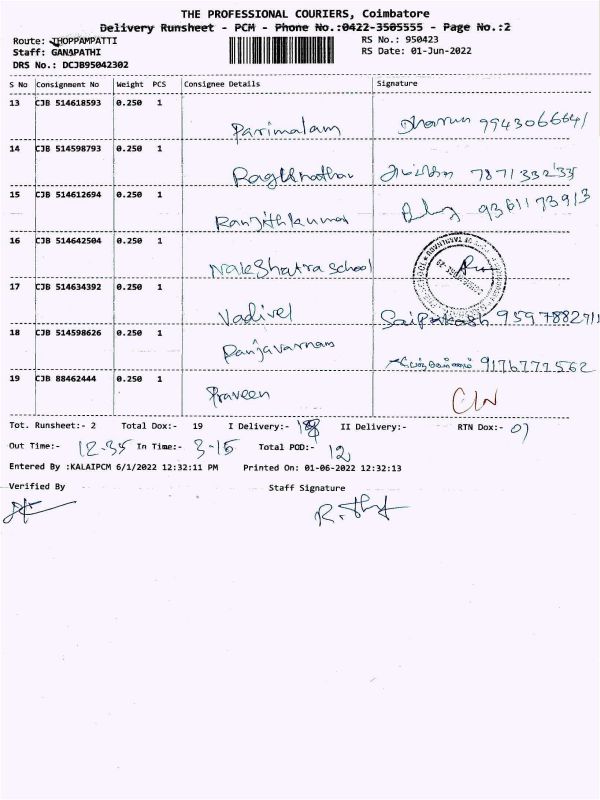 THE PROFESSIONAL COURIERS, Coimbatore
Delivery Runsheet - PCM - Phone No.:0422-3505555 - Page No.:2
Route: THOPPAMPATTI
RS No.: 950423
Staff: GANAPATHI
RS Date: 01-Jun-2022
DRS No.: DCJB95042302
S No Consignment No Weight PCS Consignee Details Signature
13 CJB 514618593 0.250 1
Parimalam Dharun 9943066641
14 CJB 514598793 0.250 1
Raghunathan 7871332233
15 CJB 514612694 0.250 1
Ranjithkumar 9361173913
16 CJB 514642504 0.250 1
Nakshatra School
17 CJB 514634392 0.250 1
Vadivel Saiprakash 9597882711
18 CJB 514598626 0.250 1
Panjavarnam 9176772562
19 CJB 88462444 0.250 1
Praveen
Tot. Runsheet:- 2 Total Dox:- 19 I Delivery:- II Delivery:- RTN Dox:- 07
Out Time:- 12-35 In Time:- 3-15 Total POD:- 12
Entered By :KALAIPCM 6/1/2022 12:32:11 PM Printed On: 01-06-2022 12:32:13
Verified By Staff Signature